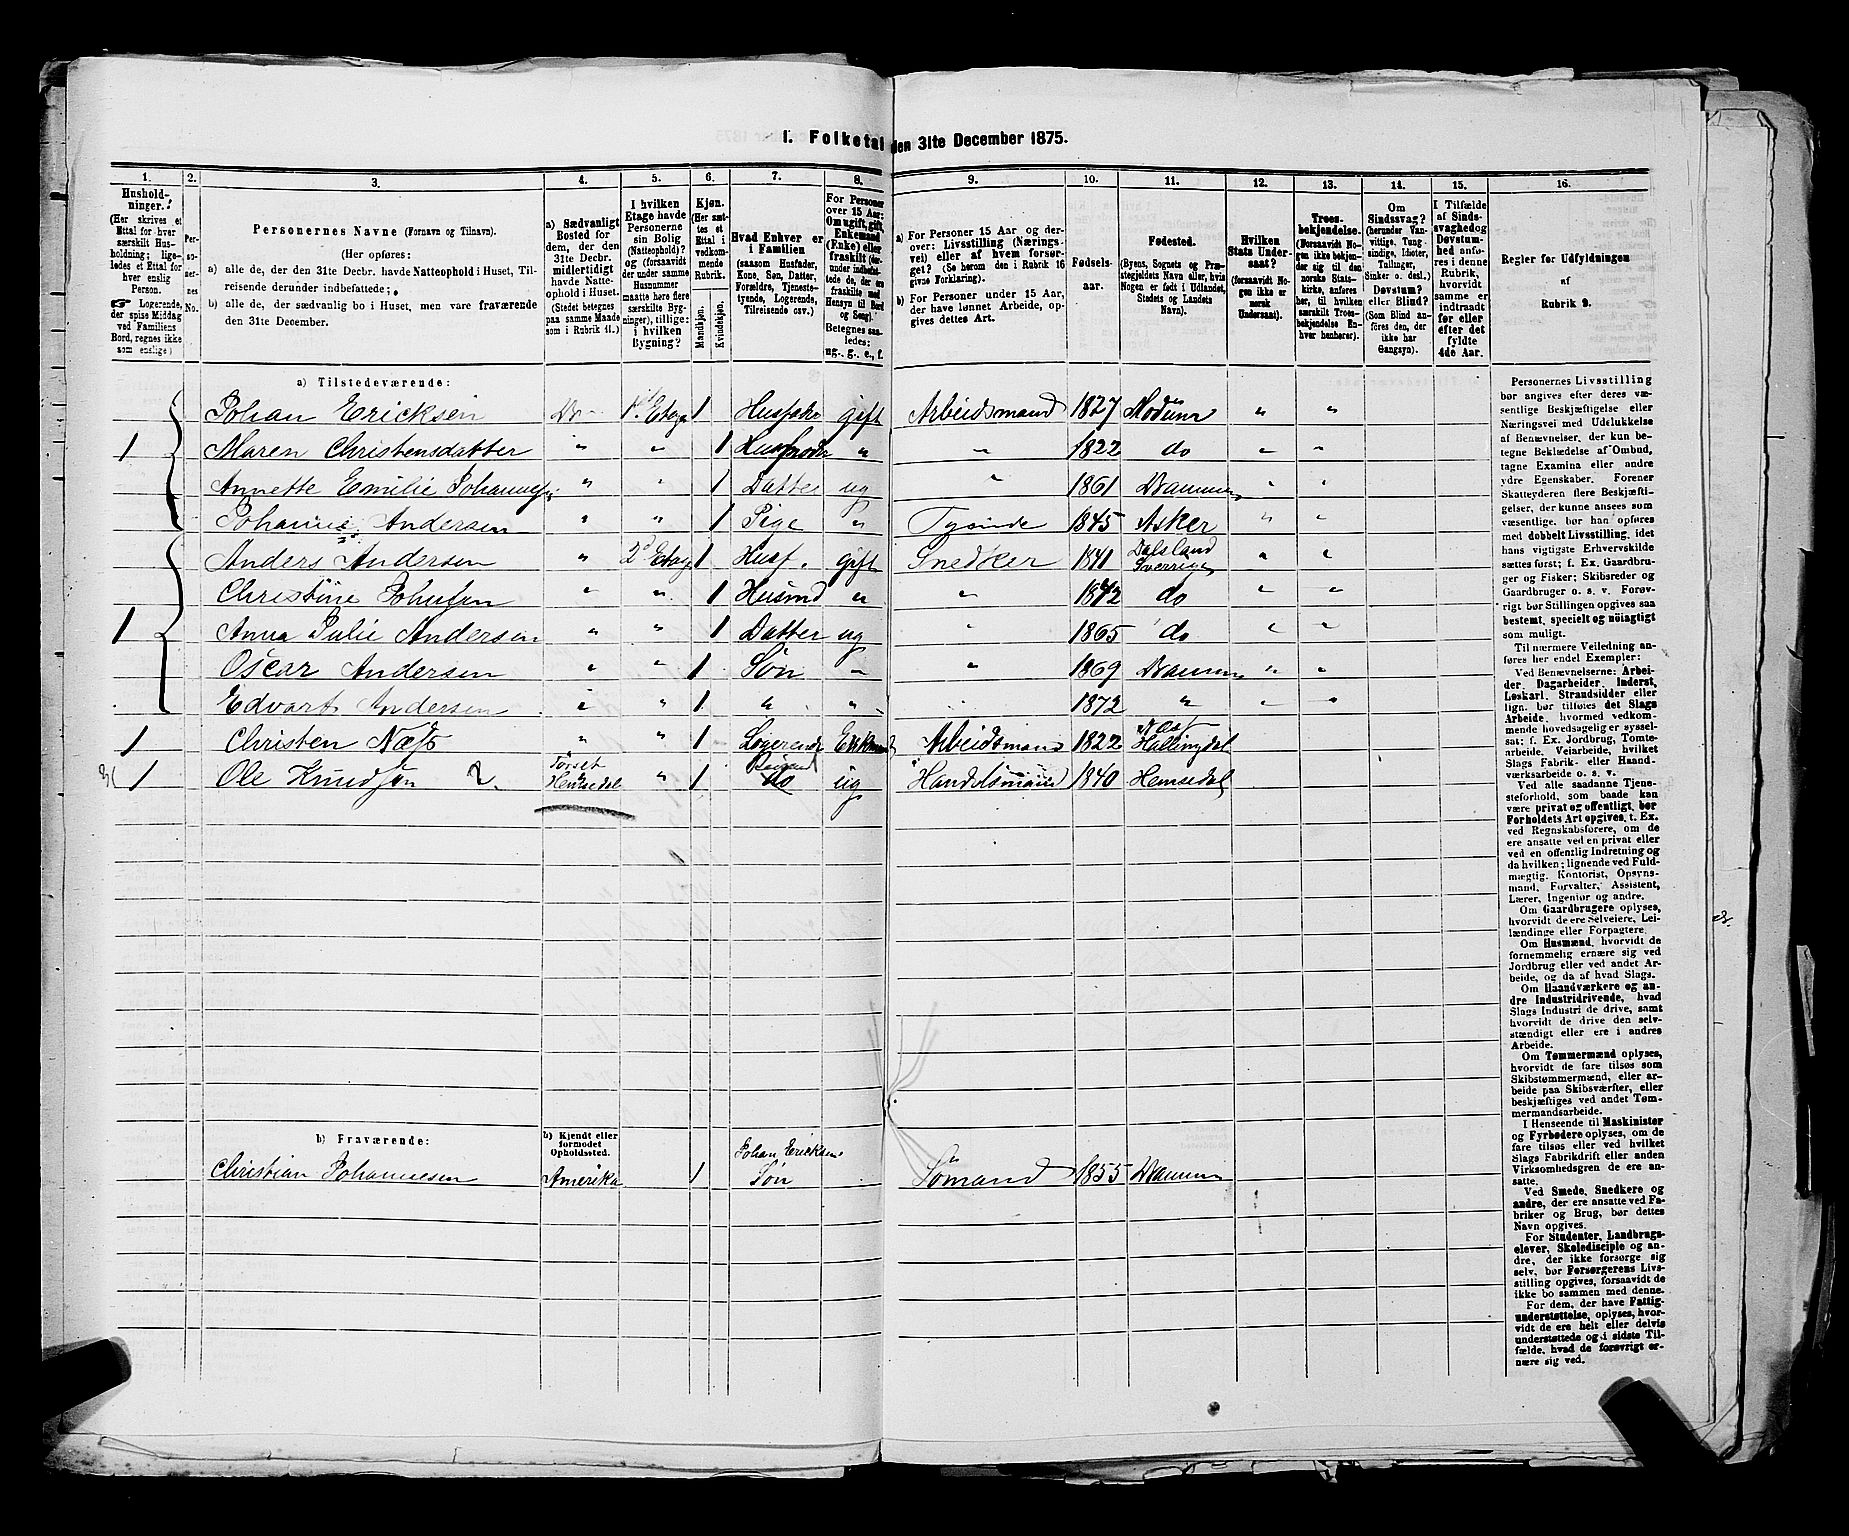 I. Folketal den 31te December 1875.
1. 2. 3. 4. 5. 6. 7. 8. 9. 10. 11. 12. 13. 14. 15. 16.
Husholdninger.
(Her skrives et Ettal for hver særskilt Husholdning; ligeledes et Ettal for hver enslig Person.
☞ Logerende, der spise Middag ved Familiens Bord, regnes ikke som enslige)
Personernes No.
Personernes Navne (Fornavn og Tilnavn).
(Her opføres:
a) alle de, der den 31te Decbr. havde Natteophold i Huset, Tilreisende derunder indbefattede;
b) alle de, der sædvanlig bo i Huset, men vare fraværende den 31te December.
a) Sædvanligt Bosted for dem, der den 31te Decbr. midlertidigt havde Natteophold i Huset.
(Stedet betegnes paa samme Maade som i Rubrik 11.)
I hvilken Etage havde Personerne sin Bolig (Natteophold)?
(forsaavidt der under samme Husnummer maatte høre flere særskilte Bygninger), tillige: i hvilken Bygning?
Kjøn.
(Her sættes et Ettal i vedkommende Rubrik.
Mandkjøn. Kvindekjøn.
Hvad Enhver er i Familien
(saasom Husfader, Kone, Søn, Datter, Forældre, Tjenestetyende, Logerende, Tilreisende osv.)
For Personer over 15 Aar: Om ugift, gift, Enkemand (Enke) eller fraskilt
Betegnes saaledes: ug., g., e., f.
a) For Personer 15 Aar og derover: Livsstilling (Næringsvei) eller af hvem forsørget? (Se herom den i Rubrik 16 givne Forklaring).
b) For Personer under 15 Aar, der have lønnet Arbeide, opgives dettes Art.
Fødselsaar.
Fødested.
(Byens, Sognets og Præstegjeldets Navn eller, hvis Nogen er født i Udlandet, Stedets og Landets Navn).
Hvilken Stats Undersaat?
(forsaavidt Nogen ikke er norsk Undersaat).
Troesbekjendelse.
(Forsaavidt Nogen ikke bekjender sig til den norske Statskirke, anføres her, til hvilken særskilt Troesbekjendelse Enhver henhører).
Om Sindssvag?
(herunder Vanvittige, Tungsindige, Idioter, Tullinger, Sinker o. desl.)
Døvstum? eller Blind?
(Som Blind anføres den, der ikke har Gangsyn).
I Tilfælde af Sindssvaghed og Døvstumhed anføres i denne Rubrik, hvorvidt samme er indtraadt før eller efter det fyldte 4de Aar.
Regler for Udfyldningen af Rubrik 9.
a) Tilstedeværende:
Johan Ericksen Do 1st Etage 1 Husfader gift Arbeidsmand 1827 Modum " "
1 Maren Christensdatter " " 1 Husmoder " " 1822 do " "
Annette Emilie Johannesen " " 1 Datter ug " 1861 Drammen " "
Johanne Andersen " " 1 Pige " Tyende 1845 Asker " "
Anders Andersen " 2d Etage 1 Husf. gift Snedker 1841 Dalsland Sverrige " "
Christine Johnsen " " 1 Husmd " " 1842 do " "
1 Anna Julie Andersen " " 1 Datter ug " 1865 do " "
Oscar Andersen " " 1 Søn " " 1869 Drammen " "
Edvart Andersen " " 1 " " 1872 " " "
1 Christen Næts " " 1 Logerende Enkmand Arbeidsmand 1822 Næs Hallingdal
1 Ole Knudsen Hemsedal " 1 do ug Handelsmand 1840 Hemsedal
b) Fraværende:
b) Kjendt eller formodet Opholdssted.
Christian Johannesen Amerika 1 Johan Ericksens Søn Sømand 1855 Drammen
Personernes Livsstilling bør angives efter deres væsentlige Beskjæftigelse eller Næringsvei med Udelukkelse af Benævnelser, der kun betegne Beklædelse af Ombud, tagne Examina eller andre ydre Egenskaber. Forener Skatteyderen flere Beskjæftigelser, der kunne ansees som væsentlige, bør han opføres med dobbelt Livsstilling, idet hans vigtigste Erhvervskilde sættes først; f. Ex. Gaardbruger og Fisker; Skibsreder og Gaardbruger o. s. v. Forøvrigt bør Stillingen opgives saa bestemt, specielt og nøiagtigt som muligt.
Til nærmere Veiledning anføres her endel Exempler:
Ved Benævnelserne: Arbeider, Dagarbeider, Inderst, Løskarl, Strandsidder eller lign. bør tilføies det Slags Arbeide, hvormed vedkommende hovedsagelig er sysselsat; f. Ex. Jordbrug, Tomtearbeide, Veiarbeide, hvilket Slags Fabrik- eller Haandværksarbeide o. s. v.
Ved alle saadanne Tjenesteforhold, som baade kan være privat og offentligt, bør Forholdets Art opgives, t. Ex. ved Regnskabsførere, om de ere ansatte ved en privat eller ved en offentlig Indretning og da hvilken; lignende ved Fuldmægtig, Kontorist, Opsynsmand, Forvalter, Assistent, Lærer, Ingeniør og andre.
Om Gaardbrugere oplyses, hvorvidt de ere Selveiere, Leilændinge eller Forpagtere.
Om Husmænd, hvorvidt de fornemmelig ernære sig ved Jordbrug eller ved andet Arbeide, og da af hvad Slags.
Om Haandværkere og andre Industridrivende, hvad Slags Industri de drive, samt hvorvidt de drive den selvstændigt eller ere i andres Arbeide.
Om Tømmermænd oplyses, hvorvidt de fare tilsøs som Skibstømmermænd, eller arbeide paa Skibsværfter, eller beskjæftiges ved andet Tømmermandsarbeide.
I Henseende til Maskinister og Fyrbødere oplyses, om de fare tilsøs eller ved hvilket Slags Fabrikdrift eller anden Virksomhedsgren de ere ansatte.
Ved Smede, Snedkere og andre, der ere ansatte ved Fabriker og Brug, bør dettes Navn opgives.
For Studenter, Landbrugselever, Skoledisciple og andre, der ikke forsørge sig selv, bør Forsørgerens Livsstilling opgives, forsaavidt de ikke bo sammen med denne.
For dem, der have Fattigunderstøttelse, oplyses, hvorvidt de ere helt eller delvis understøttede og i sidste Tilfælde, hvad de forøvrigt ernære sig ved.